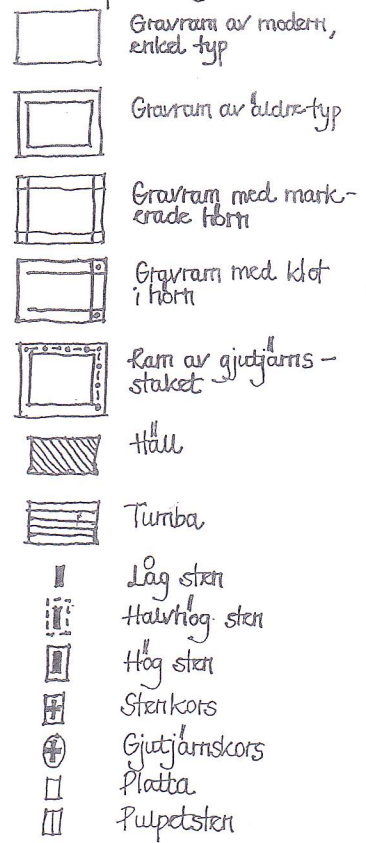 Gravram av modern,
enkel typ
Gravram av äldre typ
Gravram med mark-
erade hörn
Gravram med klot
i hörn
Ram av gjutjärns-
staket
Häll
Tumba
Låg sten
Halvhög sten
Hög sten
Stenkors
Gjutjärnskors
Platta
Pulpetsten